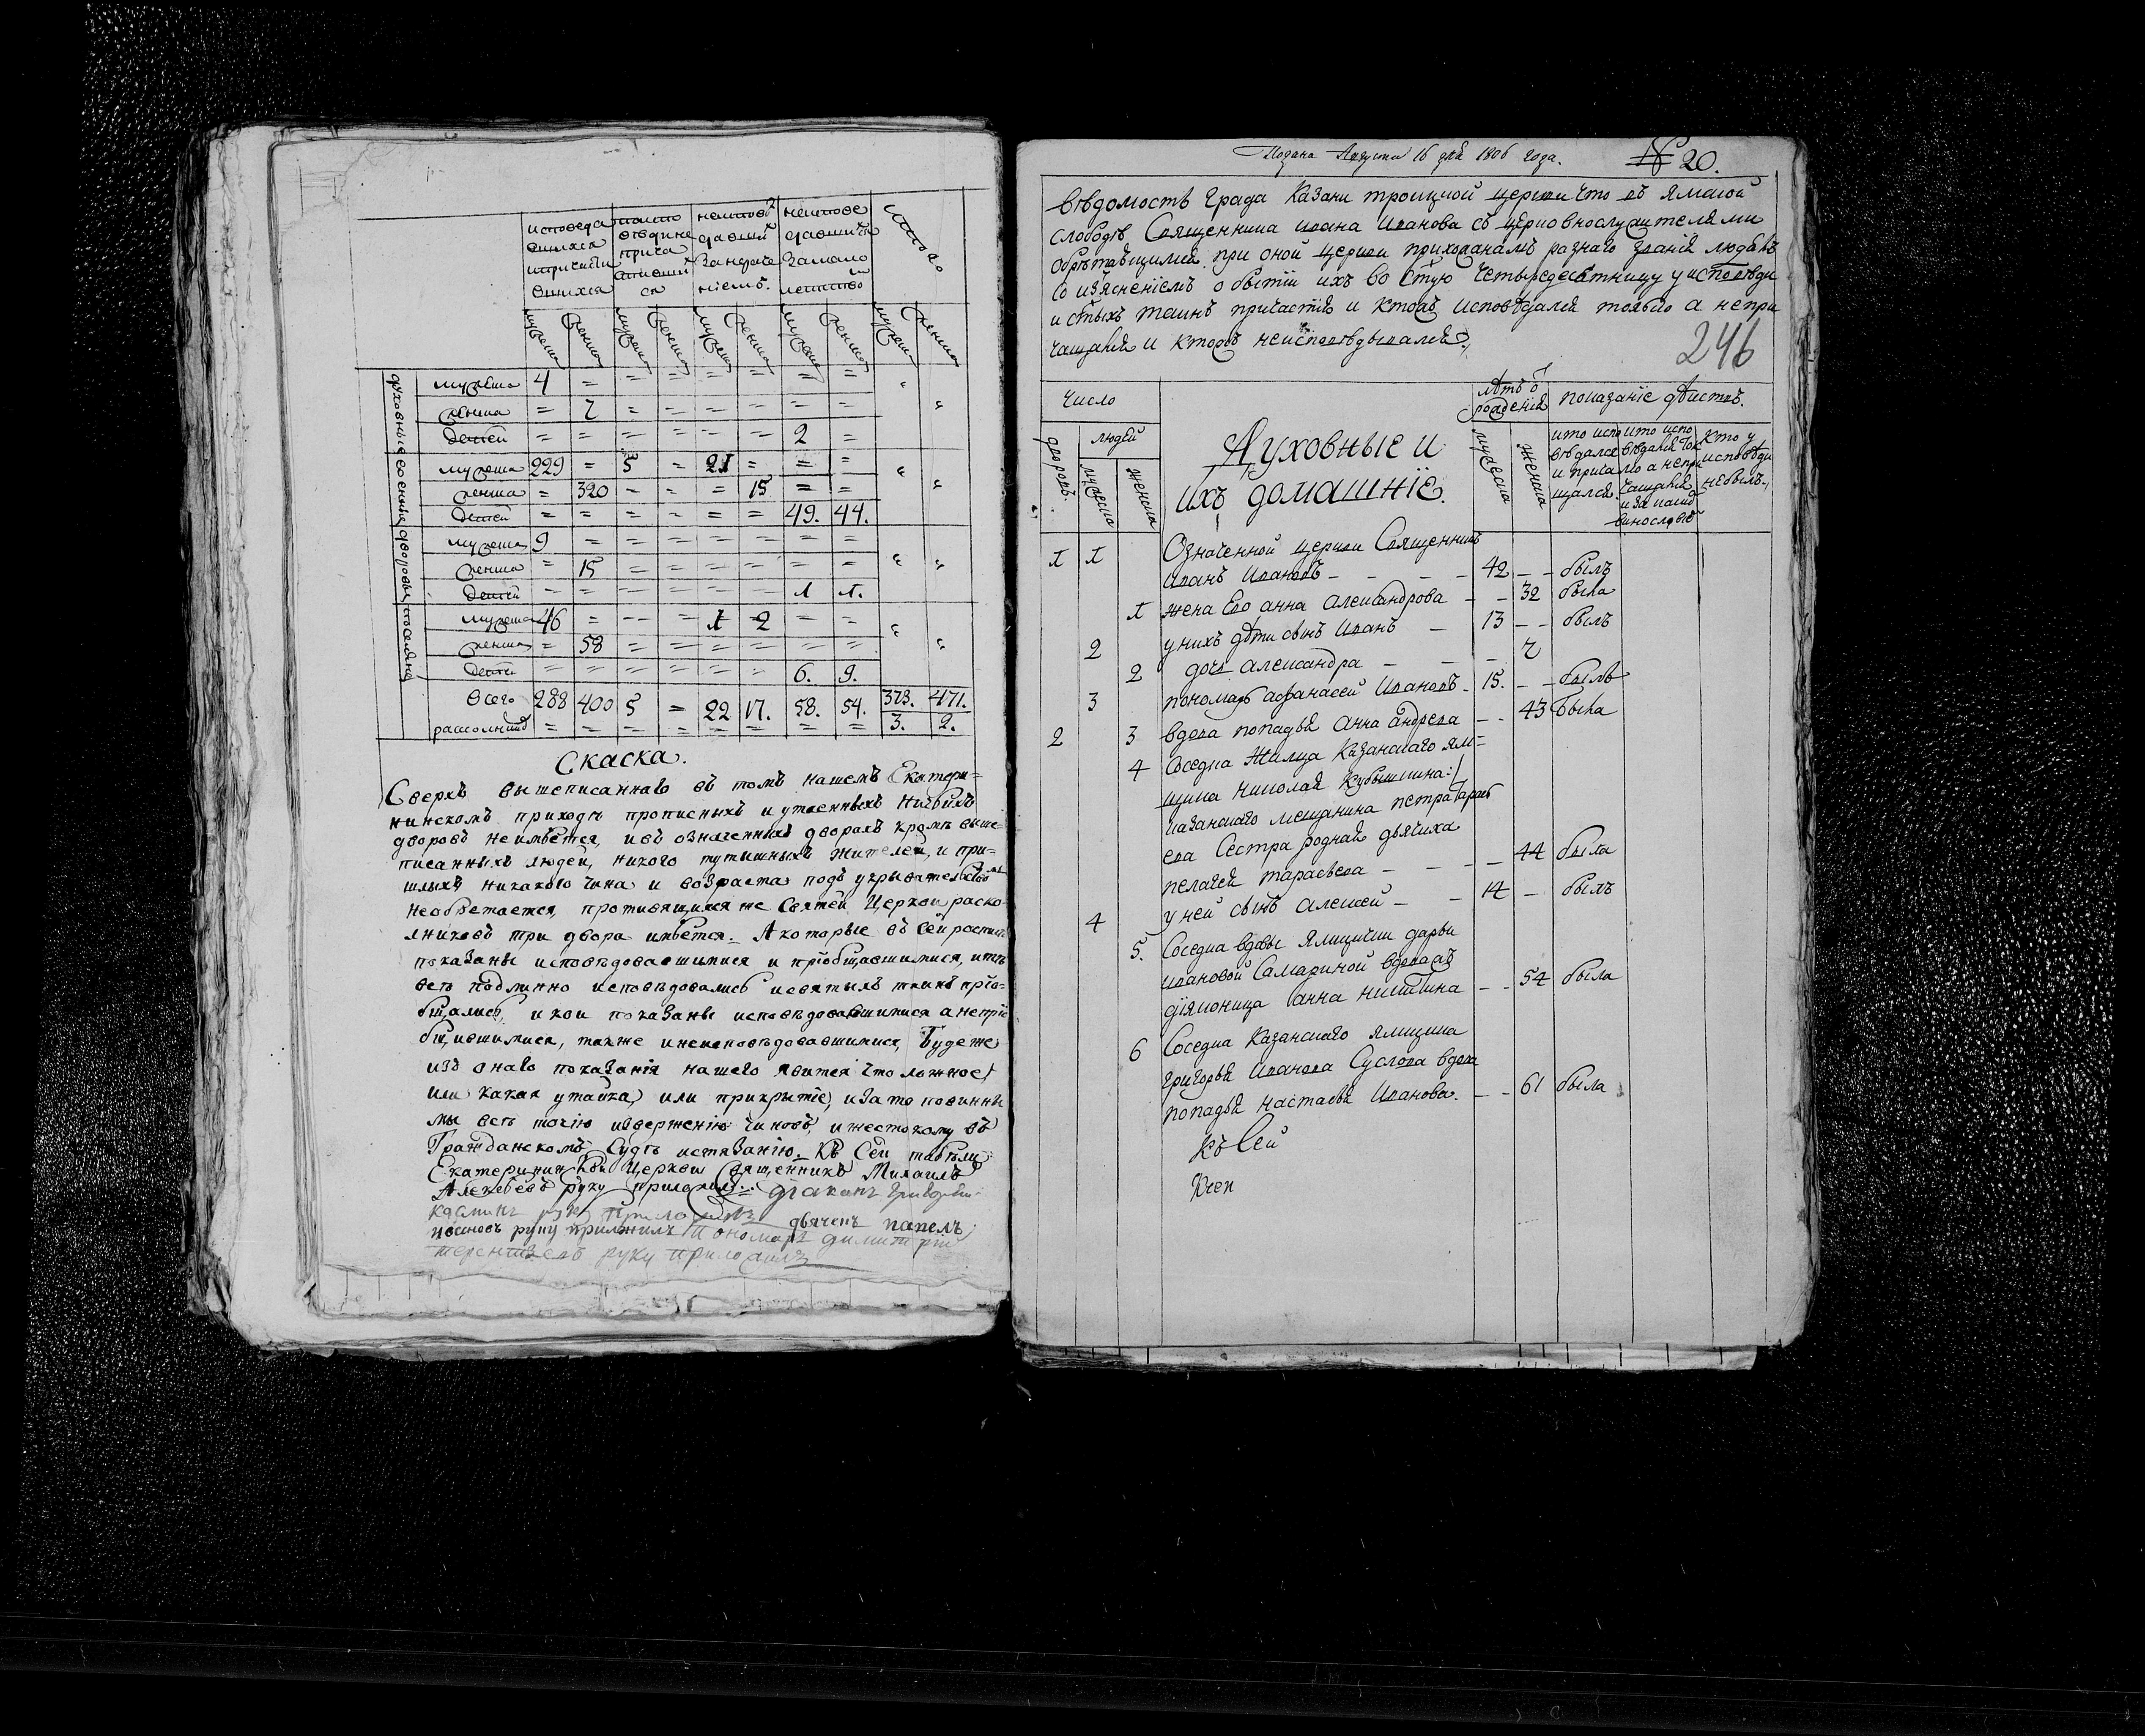 исповеда
вшихся
ипричасти
вшихся
неиспове
давший
Заноре
ніемъ.
неиспове
давшихся
Замало
летство
Итого
мужеска женска мужеска женска мужеска женска мужеска женска мужеска женска
духовные
мужеска 4 = = = = = = = " "
женска = 7 = = = = = =
детей = = = = = = 2 =
военные
мужеска 229 = 5 = 21 = = = " "
женска = 320 = = = 15 = =
детей = = = = = = 49. 44.
дворовыя
мужеска 9 = = = = = = = " "
женска = 15 = = = = = =
детей = = = = = = 1 1.
поселяне
мужеска 46 = = = 1 2 = = " "
женска = 58 = = = = = =
детей = = = = = = 6. 9.
Всего 288 400 5 = 22 17. 58. 54. 373. 471.
расколники = = = = = = = = 3. 2.
Скаска.
Сверхъ вышеписаннаго въ томъ нашемъ Екатери=
нинскомъ приходѣ прописныхъ и утаенныхъ никакихъ
дворовъ неимѣется, ивъ означенныхъ дворахъ кромѣ выше=
писанныхъ людей, никого тутошныхъ жителей, и при=
шлыхъ никакого чина и возраста подъ укрывательством
необретается, противящихся же Святей Церкви раско
лниковъ три двора имѣется. А которые въ сей росписи
показаны исповѣдовавшимися и пріобщавшимися, итѣ
всѣ подлинно исповѣдовались исвятыхъ таинъ пріо=
бщались, и кои показаны исповѣдовавшимися а непріо
бщившимися, также инеисповѣдовавшимися, Будеже
изъ онаго показанія нашего явится что ложное,
или какая утайка, или прикрытіе, иза то повинны
мы всѣ точію изверженію чиновъ, ижестокому въ
Гражданскомъ Судѣ истязанію. Къ Сей табѣли
Екатерининской Церкви Священникъ Михаилъ
Алексѣевъ руку приложилъ. діаконъ
руку приложилъ дьячекъ павелъ
ивановъ руку приложилъ Пономарь димитрій
терентьевъ руку приложилъ
Подана Августа 16 дня 1806 года. № 20.
Вѣдомость Града Казани троицкой церкви что въ ямской
слободѣ Священника ивана иванова съ церковнослужителями
обрѣтающимися при оной церкви прихожанамъ разнаго званія людемъ
со изясненіемъ о бытіи ихъ во стую четыредесятницу у исповѣди
и стыхъ таинъ причастія и кторъ исповѣдался только а непри
чащался и кторъ неисповѣдывался.
246
Число
Лѣтъ ѿ
рожденія
показаніе дѣйствъ.
дворовъ.
людей
мужеска
женска
Духовные и
ихъ домашніе.
мужеска
женска
кто испо
вѣдался
и прича
щался.
кто испо
вѣдался ток
мо а непри
чащался
и за какою
винословіе
кто у
исповѣди
небылъ.
1 1 Означенной церкви Священникъ
иванъ ивановъ - - - 42 - - былъ
1 жена Его анна александрова - - 32 была
2 унихъ дѣти сынъ иванъ - 13 - - былъ
2 дочь александра - - - 7
3 пономарь афанасей ивановъ - 15. - - былъ
2 3 вдова попадья анна андрева - - 43 была
4 Соседка Жилца Казанскаго ям=
щика николая Кубышкина:
казанскаго мещанина петра тарасѣ
ева Сестра родная дьячиха
пелагея тарасьева - - - - 44 была
4 у ней сынъ алексей - - 14 - былъ
5. Соседка вдовы Ямщички дарьи
ивановой Самариной вдовая
діяконица анна никитина - - 54 была
6 Соседка Казанскаго ямщика
григорья иванова Суслова вдова
попадья настасья иванова. - - 61 была
Къ Сей